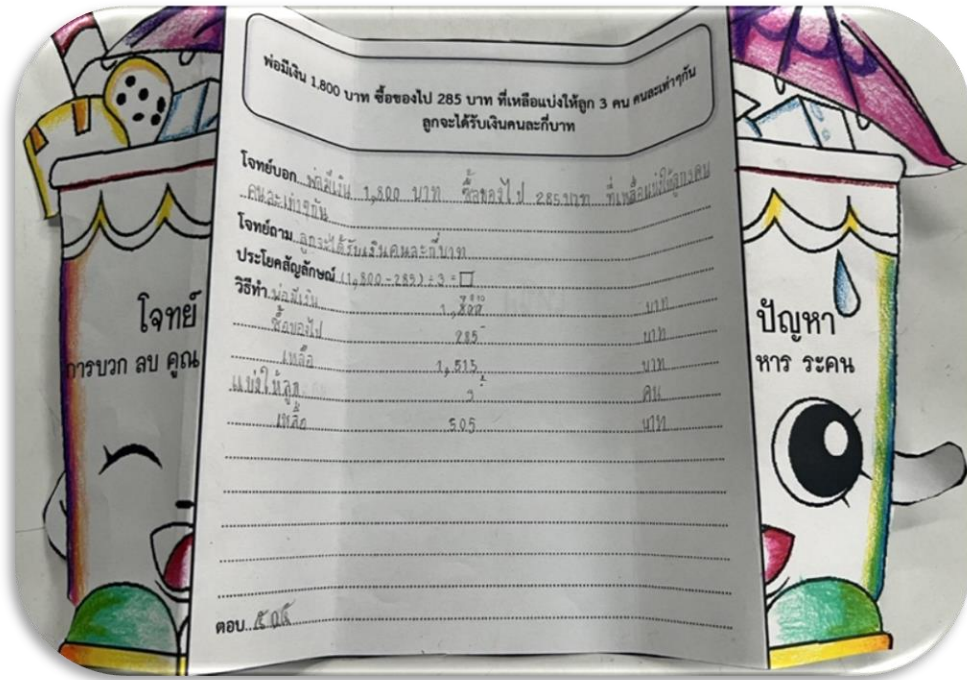 พ่อมีเงิน 1,800 บาท ซื้อของไป 285 บาท ที่เหลือแบ่งให้ลูก 3 คน คนละเท่าๆกัน
ลูกจะได้รับเงินคนละกี่บาท
โจทย์บอก พ่อมีเงิน 1,800 บาท ซื้อของไป 285 บาท ที่เหลือแบ่งให้ลูก 3 คน
คนละเท่าๆกัน
โจทย์ถาม ลูกจะได้รับเงินคนละกี่บาท
ประโยคสัญลักษณ์ (1,800-285)÷3=□
วิธีทำ พ่อมีเงิน 1,800 บาท
ซื้อของไป 285 บาท
เหลือ 1,515 บาท
แบ่งให้ลูก 3 คน
เหลือ 505 บาท
ตอบ ๕๐๕
โจทย์
การบวก ลบ คูณ
ปัญหา
หาร ระคน